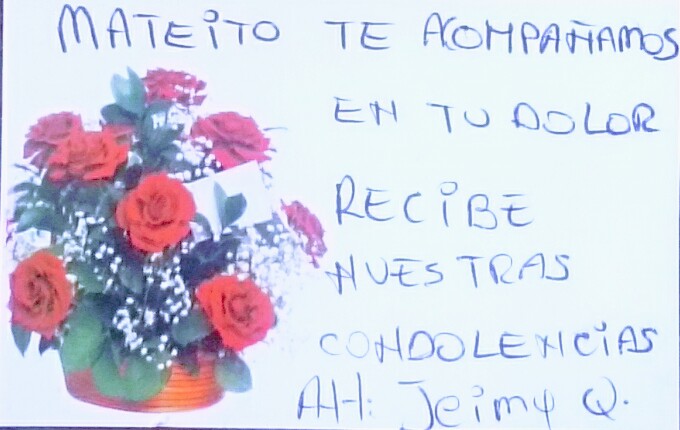 MATEiTO TE ACOMPAÑAMOS
EN TU DOLOR
RECiBE
NUESTRAS
CONDOLENCiAS
Att: Jeimy Q.